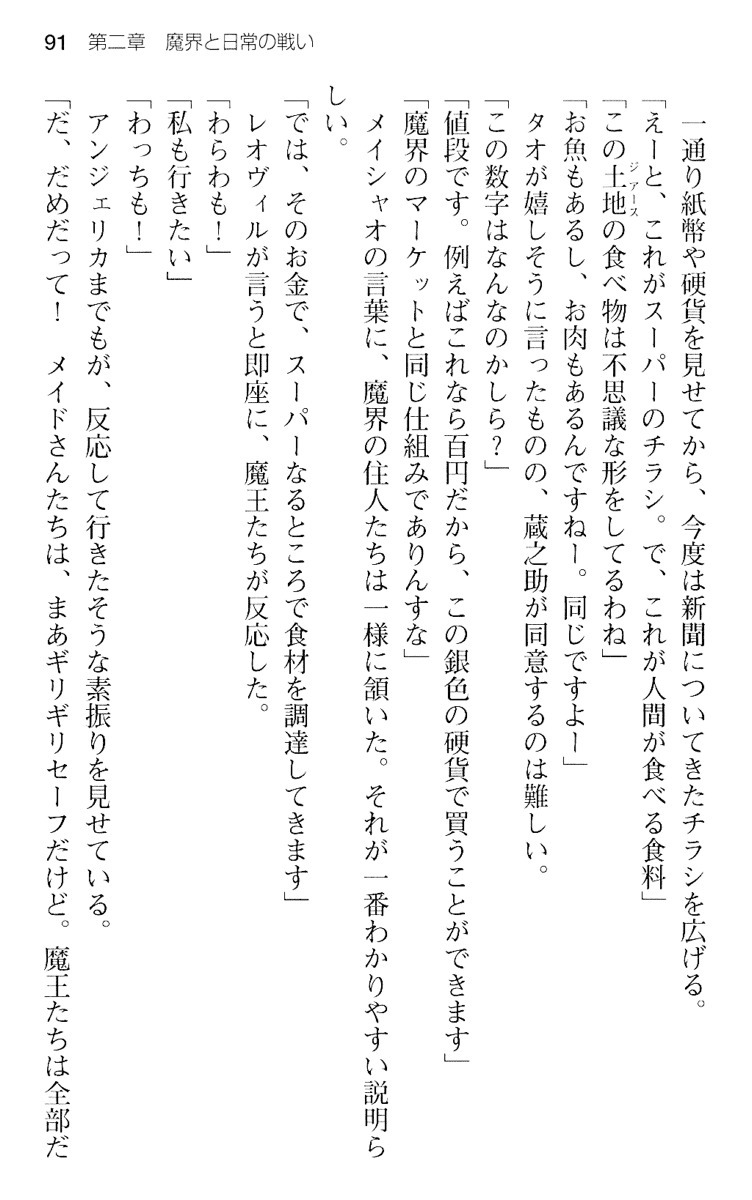 91 第二章 魔界と日常の戦い
　一通り紙幣や硬貨を見せてから、今度は新聞についてきたチラシを広げる。
「えーと、これがスーパーのチラシ。で、これが人間が食べる食料」
「この土地の食べ物は不思議な形をしてるわね」
ジアース
「お魚もあるし、お肉もあるんですねー。同じですよー」
　タオが嬉しそうに言ったものの、蔵之助が同意するのは難しい。
「この数字はなんなのかしら？」
「値段です。例えばこれなら百円だから、この銀色の硬貨で買うことができます」
「魔界のマーケットと同じ仕組みでありんすな」
　メイシャオの言葉に、魔界の住人たちは一様に頷いた。それが一番わかりやすい説明ら
しい。
「では、そのお金で、スーパーなるところで食材を調達してきます」
　レオヴィルが言うと即座に、魔王たちが反応した。
「わらわも！」
「私も行きたい」
「わっちも！」
　アンジェリカまでもが、反応して行きたそうな素振りを見せている。
「だ、だめだって！　メイドさんたちは、まあギリギリセーフだけど。魔王たちは全部だ